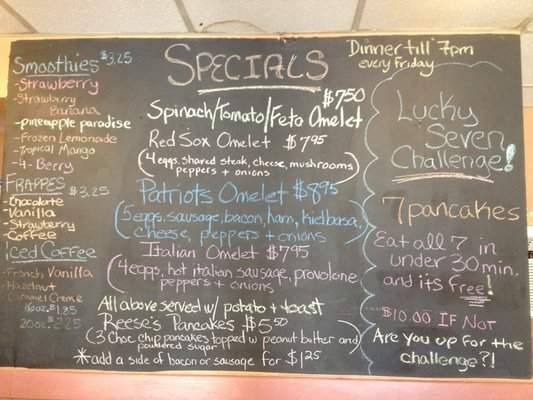 Smoothies $3.25
-Strawberry
-Strawberry
Banana
-pineapple paradise
-Frozen Lemonade
-Tropical Mango
-4-Berry
FRAPPES $3.25
-Chocolate
-Vanilla
-Strawberry
-Coffee
Iced Coffee
-French Vanilla
-Hazelnut
-Caramel Creme
16oz. $1.85
20oz. 2.25
SPECIALS
Spinach/Tomato/Feta Omelet $7.50
Red Sox Omelet $7.95
(4 eggs, shaved steak, cheese, mushrooms
peppers + onions)
Patriots Omelet $8.95
(5 eggs, sausage, bacon, ham, kielbasa,
cheese, peppers + onions)
Italian Omelet $7.95
(4 eggs, hot italian sausage, provolone
peppers + onions)
All above served w/ potato + toast
Reese's Pancakes $5.50
(3 Choc chip pancakes topped w/ peanut butter and
powdered sugar)
*add a side of bacon or sausage for $1.25
Dinner till 7pm
every Friday
Lucky
Seven
Challenge!
7 pancakes
Eat all 7 in
under 30 min.
and its Free!
$10.00 IF NOT
Are you up for the
challenge?!